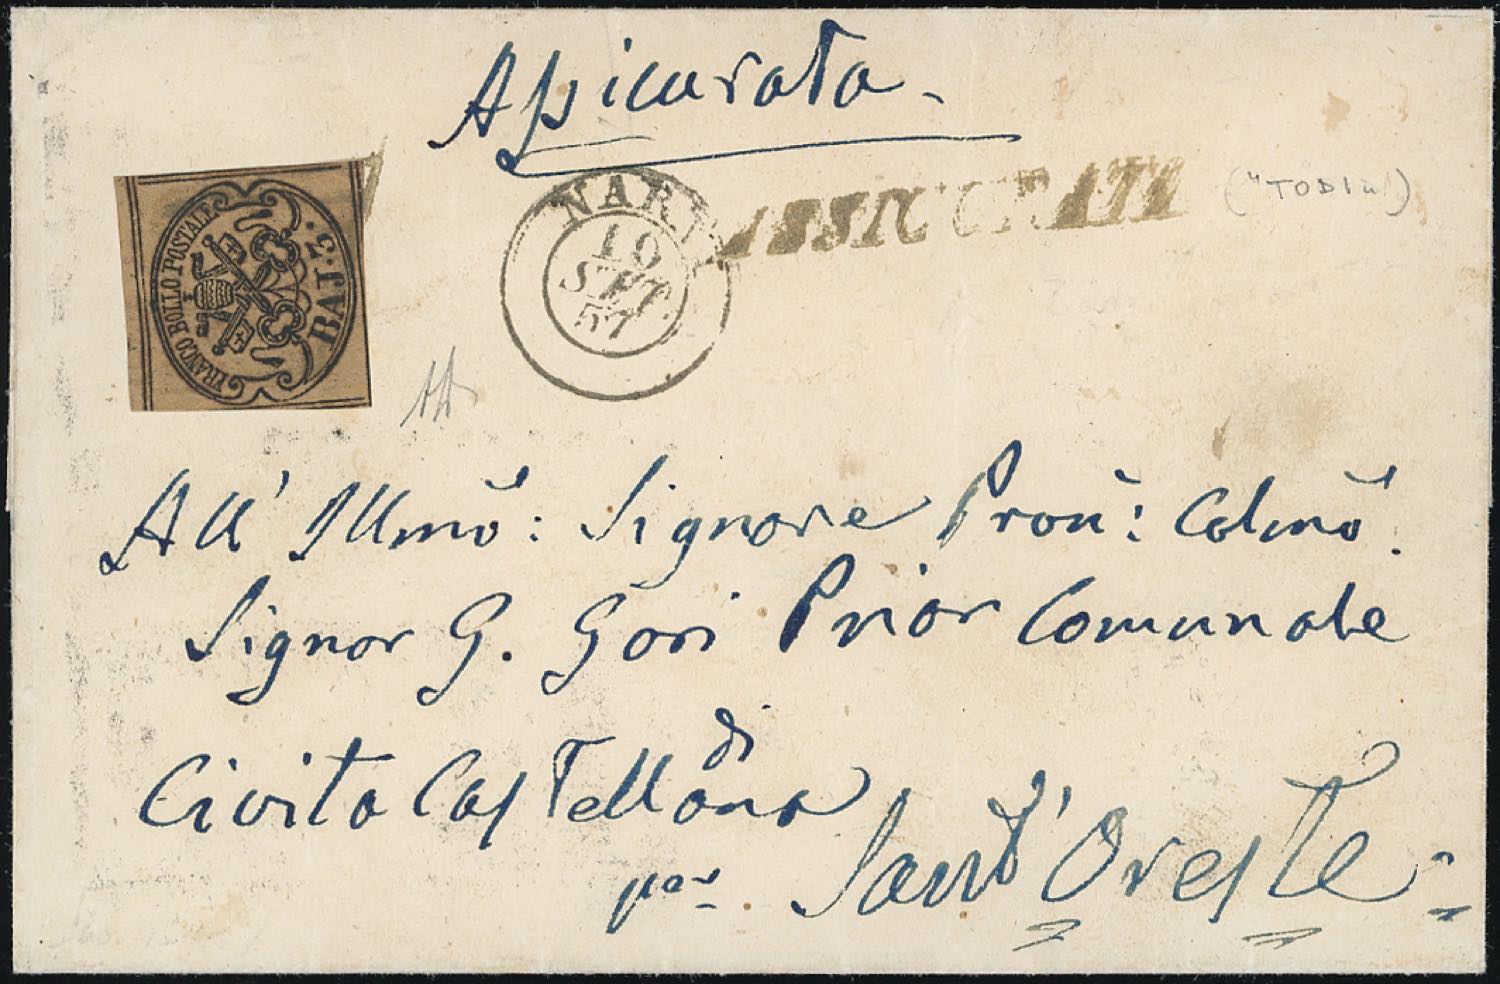 Assicurata
NARNI
ASSICURATA
("TODI")
10
SET.
57
FRANCO BOLLO POSTALE
BAJ. 5.
All' Illmo: Signore Proñ: Colmo.
Signor G. Gori Prior Comunale
di
Civita Castellana
per Sant' Oreste